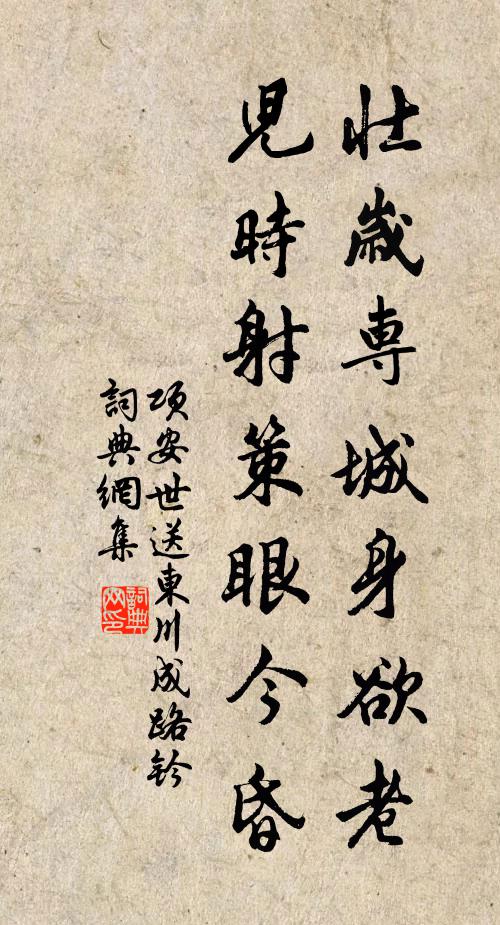 壮歲専城身欲老
兒時射策眼今昏
項安世送東川成路鈐
詞典網集
詞典
网印